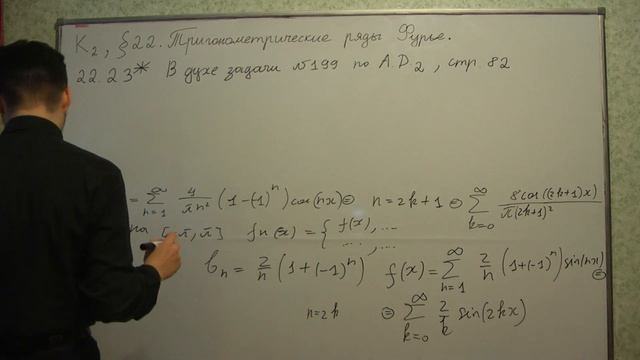 K₂, §22. Тригонометрические ряды Фурье.
22.23* В духе задачи №199 по А.D₂, стр. 82
= ∑_{n=1}^{∞} 4/(πn²) (1-(-1)ⁿ)cos(nx) = n=2k+1 = ∑_{k=0}^{∞} 8cos((2k+1)x)/(π(2k+1)²)
на [-π, π] fn(x) = { f(x), ...
... , ...
bₙ = 2/n (1+(-1)ⁿ) f(x) = ∑_{n=1}^{∞} 2/n (1+(-1)ⁿ)sin(nx) =
n=2k = ∑_{k=0}^{∞} 2/k sin(2kx)